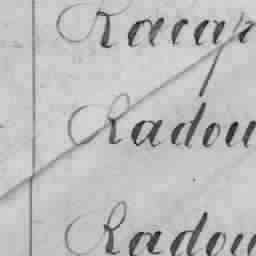 Racap
Radou
Radou